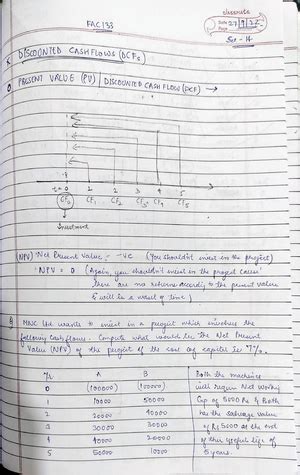 FAC133
classmate
Date 27/9/22
Page
Ses - 14
DISCOUNTED CASHFLOWS (DCFs)
PRESENT VALUE (PV) | DISCOUNTED CASHFLOW (DCF) →
t=0 1 2 3 4 5
CF0 CF1 CF2 CF3 CF4 CF5
Investment
(NPV) Net Present Value :- -ve (You shouldn't invest in the project)
NPV = 0 (Again, you shouldn't invest in the project cause
there are no returns according to the present values
& will be a waste of time)
Q MNC Ltd wants to invest in a project which involves the
following cash flows. Compute what would be the Net Present
Value (NPV) of the project if the cost of capital is 7%.
Yr A B
0 (100000) (100000)
1 10000 50000
2 20000 40000
3 30000 30000
4 40000 20000
5 50000 10000
Both the machines
will require Net Working
Cap of 5000 Rs & Both
has the salvage value
of Rs 5000 at the end
of their useful life of
5 years.